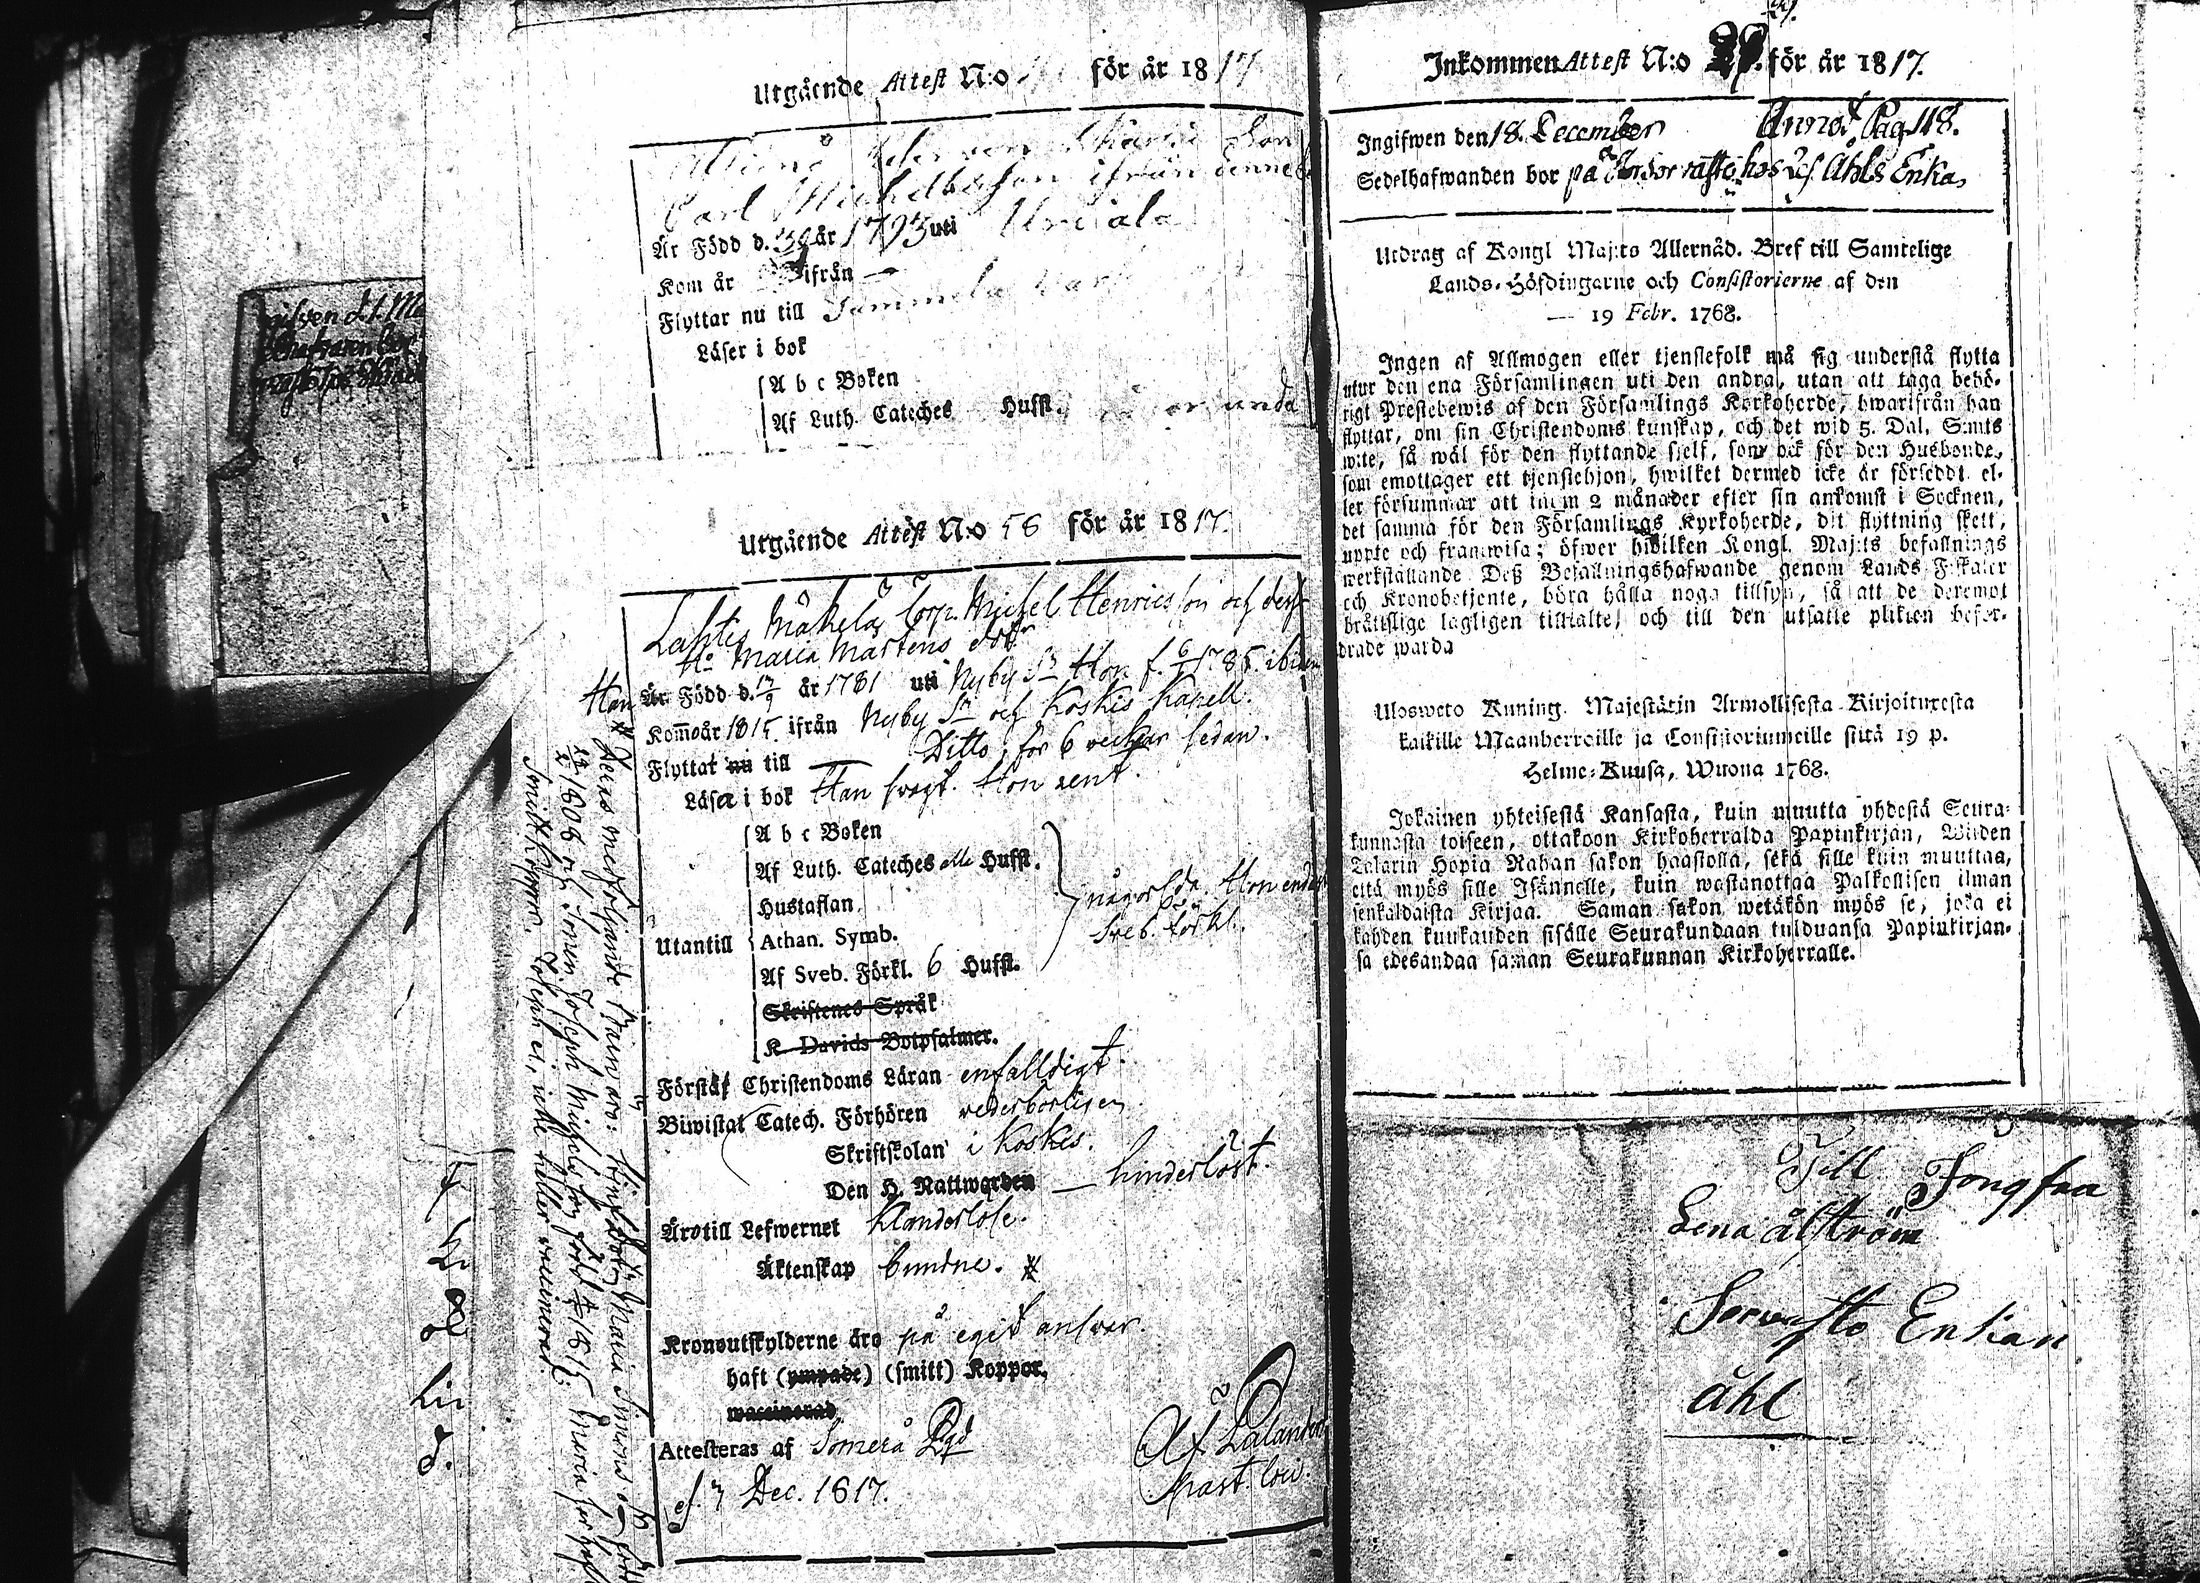 Utgående Attest N:o för år 1817
Carl Michelsson ifrån
Är Född d. år 1793 uti Urdiala
Kom år ifrån —
Flyttar nu till Sammela
Läser i bok
A b c Boken
Af Luth. Cateches Hufst.
Utgående Attest N:o 58 för år 1817.
Lahtis Mäkelä Torp. Michel Henricsson och dess
Hu Maria Mårtens dotr
Han Är Född d. 17/9 år 1781 uti Nyby Sn Hon f. 1785 ibidem
Kommo år 1815 ifrån Nyby Sn och Koskis Kapell.
Flyttat nu till — Ditto för 6 veckor sedan.
Läsa i bok Han svagt. Hon rent.
A b c Boken
Af Luth. Cateches alla Hufst.
Hustaflan
Utantill Athan. Symb.
någorlda. Hon endast
Sveb. förkl.
Af Sveb. Förkl. 6 Hufst.
Skriftenes Språk
K. Davids Botpsalmer.
Förstå Christendoms Läran enfalldigt.
Biwistat Catech. Förhören vederbörligen
Skriftskolan i Koskis.
Den H. Nattwarden — hinderlöst.
Äro till Lefwernet klanderlöse.
Äktenskap bundne. #
Kronoutskylderne äro på eget ansvar.
haft (ympade) (smitt) Koppor.
waccinerad
Attesteras af Somero Pgd
d. 7 Dec. 1817.
A. F. Palander
Past. loci.
# Deras medföljande barn äro: Maria Simons dr född
1808 och Sonen Joseph Michelsson född 1815 Maria har haft
Smittkoppor. Joseph ei, icke heller vaccinerad.
Inkommen Attest N:o 29. för år 1817.
Ingifwen den 18. December Annot. Pag. 118.
Sedelhafwanden bor på hos Åhls Enka,
Utdrag af Kongl Maj:ts Allernåd. Bref till Samtelige
Lands-Höfdingarne och Consistorierne af den
— 19 Febr. 1768.
Ingen af Allmogen eller tjenstefolk må sig understå flytta
utur den ena Församlingen uti den andra, utan att taga behö-
rigt Prestebewis af den Församlings Kyrkoherde, hwarifrån han
flyttar, om sin Christendoms kunskap, och det wid 5. Dal. S:mts
wite, så wäl för den flyttande sjelf, som ock för den Husbonde,
som emottager ett tjenstehjon, hwilket dermed icke är försedt el-
ler försummar att inom 2 månader efter sin ankomst i Socknen,
det samma för den Församlings Kyrkoherde, dit flyttning skett,
uppte och framwisa; öfwer hwilken Kongl. Maj:ts befallnings
werkställande Deß Befallningshafwande genom Lands Fiskaler
och Kronobetjente, böra hålla noga tillsyn, så att de deremot
bråttslige lagligen tilltalte, och till den utsatte plikten befor-
drade warda
Ulosweto Kuning. Majestätin Armollisesta Kirjoituxesta
kaikille Maanherroille ja Consistoriumeille siitä 19 p.
Helme-Kuusa, Wuona 1768.
Jokainen yhteisestä Kansasta, kuin muutta yhdestä Seura-
kunnasta toiseen, ottakoon Kirkoherralda Papinkirjan, Wiiden
Talarin Hopia Rahan sakon haastolla, sekä sille kuin muuttaa,
että myös sille Isännelle, kuin wastanottaa Palkollisen ilman
senkaldaista Kirjaa. Saman sakon wetäkön myös se, joka ei
kahden kuukauden sisälle Seurakundaan tulduansa Papinkirjan-
sa edesandaa saman Seurakunnan Kirkoherralle.
Till Jongfru
Lena Ålström
Enkan
Åhl